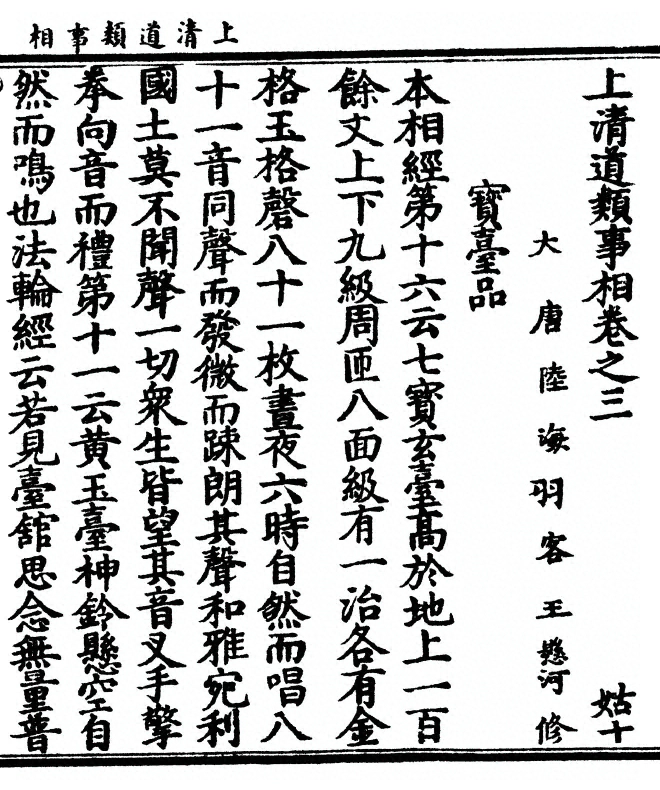 上清道類事相
上清道類事相卷之三 姑十
大唐陸海羽客王懸河修
寶臺品
本相經第十六云七寶玄臺髙於地上一百
餘丈上下九級周匝八面級有一治各有金
格玉格磬八十一枚晝夜六時自然而唱八
十一音同聲而發微而踈朗其聲和雅宛利
國土莫不聞聲一切衆生皆望其音叉手擎
拳向音而禮第十一云黃玉臺神鈴懸空自
然而鳴也法輪經云若見臺舘思念無量普